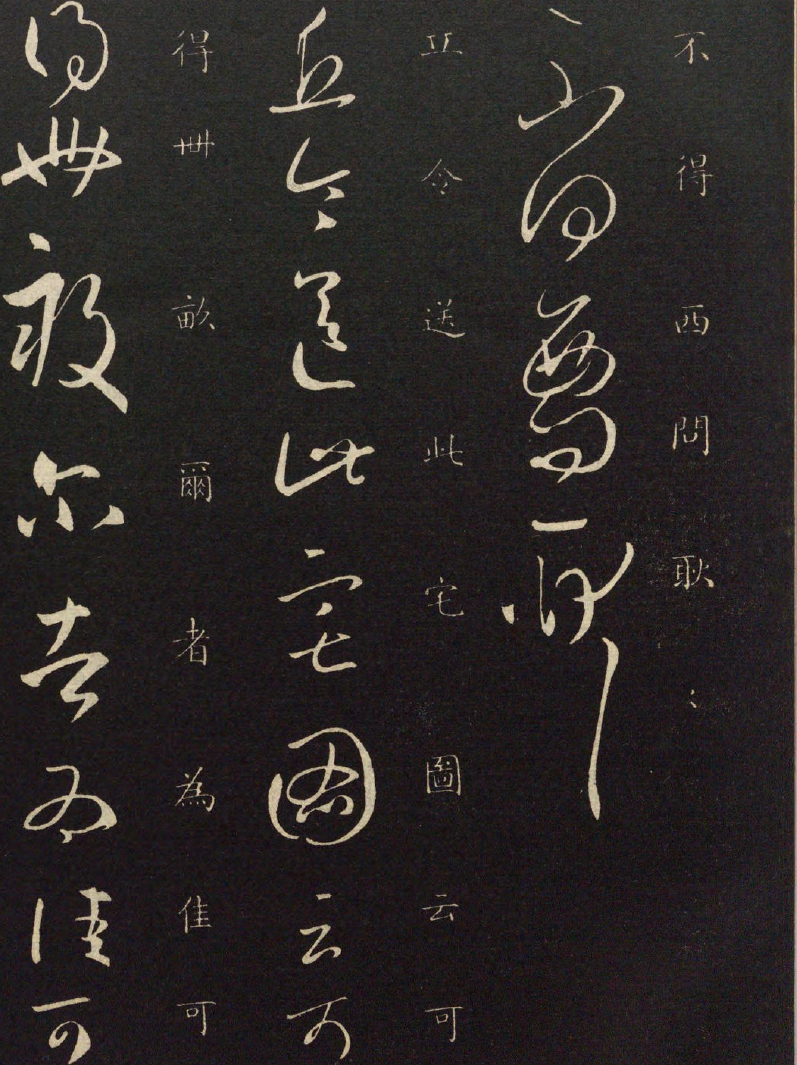 不得西問耿〻
不得西問耿〻
丘令送此宅圖云可
丘令送此宅圖云可
得卌畝爾者為佳可
得卌畝尔者為佳可